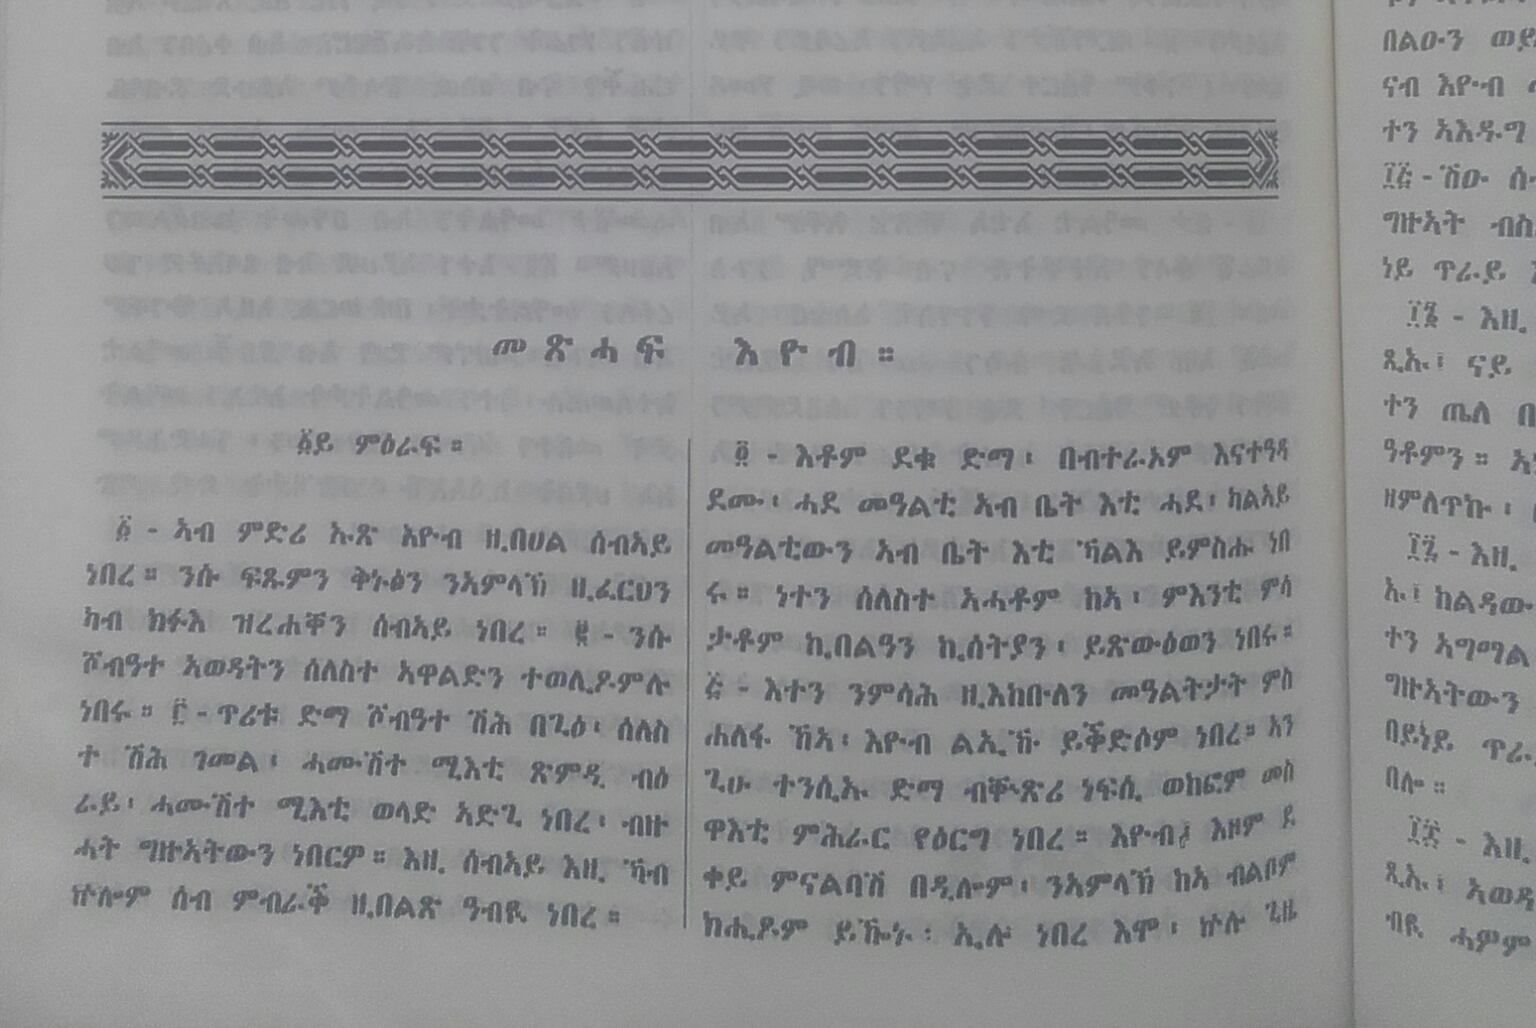 መጽሓፍ እዮብ ።
፩ይ ምዕራፍ ።
፩ - ኣብ ምድሪ ኡጽ እዮብ ዚበሀል ሰብኣይ
ነበረ ። ንሱ ፍጹምን ቅኑዕን ንኣምላኽ ዚፈርህን
ካብ ክፉእ ዝረሐቐን ሰብኣይ ነበረ ። ፪ - ንሱ
ሾብዓተ ኣወዳትን ሰለስተ ኣዋልድን ተወሊዶምሉ
ነበሩ ። ፫ - ጥሪቱ ድማ ሾብዓተ ሽሕ በጊዕ ፡ ሰለስ
ተ ሽሕ ገመል ፡ ሓሙሽተ ሚእቲ ጽምዲ ብዕ
ራይ ፡ ሓሙሽተ ሚእቲ ወላድ ኣድጊ ነበረ ፡ ብዙ
ሓት ግዙኣትውን ነበርዎ ። እዚ ሰብኣይ እዚ ኻብ
ኵሎም ሰብ ምብራቕ ዚበልጽ ዓብዪ ነበረ ።
፬ - እቶም ደቁ ድማ ፡ በብተራኦም እናተዓዳ
ደሙ ፡ ሓደ መዓልቲ ኣብ ቤት እቲ ሓደ ፡ ካልኣይ
መዓልቲውን ኣብ ቤት እቲ ኻልእ ይምስሑ ነበ
ሩ ። ነተን ሰለስተ ኣሓቶም ከኣ ፡ ምእንቲ ምሳ
ታቶም ኪበልዓን ኪሰትያን ፡ ይጽውዕወን ነበሩ ።
፭ - እተን ንምሳሕ ዚእከበለን መዓልትታት ምስ
ሐለፋ ኸኣ ፡ እዮብ ልኢኹ ይቕድሶም ነበረ ። አን
ጊሁ ተንሲኡ ድማ ብቝጽሪ ነፍሲ ወከፎም መስ
ዋእቲ ምሕራር የዕርግ ነበረ ። እዮብ፤ እዞም ደ
ቀይ ምናልባሽ በዲሎም ፡ ንኣምላኽ ከኣ ብልቦም
ክሒዶም ይዀኑ ፡ ኢሉ ነበረ እሞ ፡ ኵሉ ጊዜ
በልዑን
ናብ እዮብ
ተን ኣእዱግ
፲፭ - ሽዑ
ግዙኣት
ነይ ጥራይ
፲፮ - እዚ
ጺኡ ፤ ናይ
ተን ጤለ
ዓቶምን ።
ዘምለጥኩ ፡
፲፯ - እዚ
ኡ ፤ ከልዳው
ተን ኣግማል
ግዙኣትውን
በይነይ
በሎ ።
፲፰ - እዚ
ጺኡ ፤
ብዪ